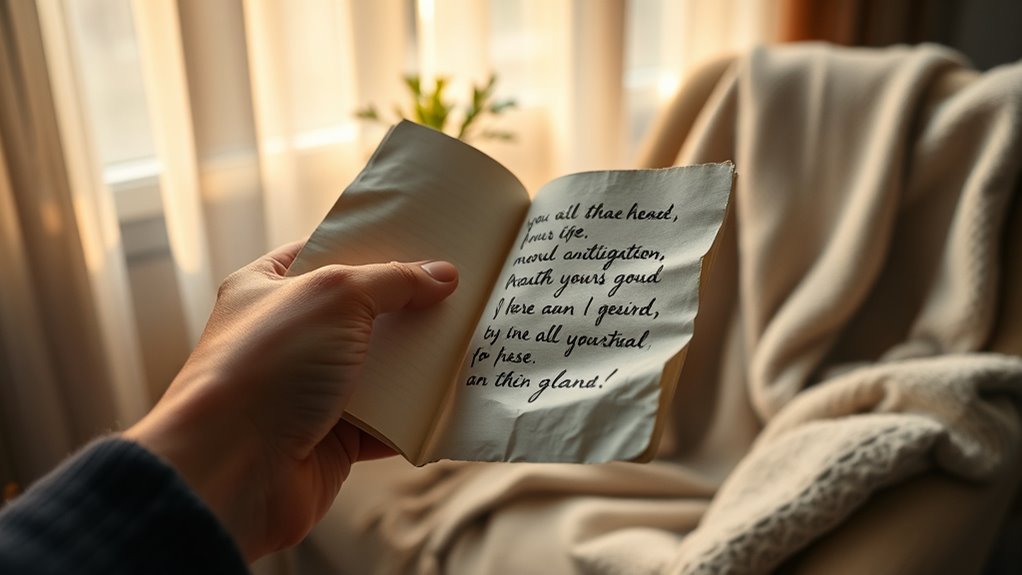 you all thae heed,
your life.
moeul anitligation,
Aeauth yours goud
I lere aan I geeird,
by lne all yourtual,
for hese.
an thin gland!